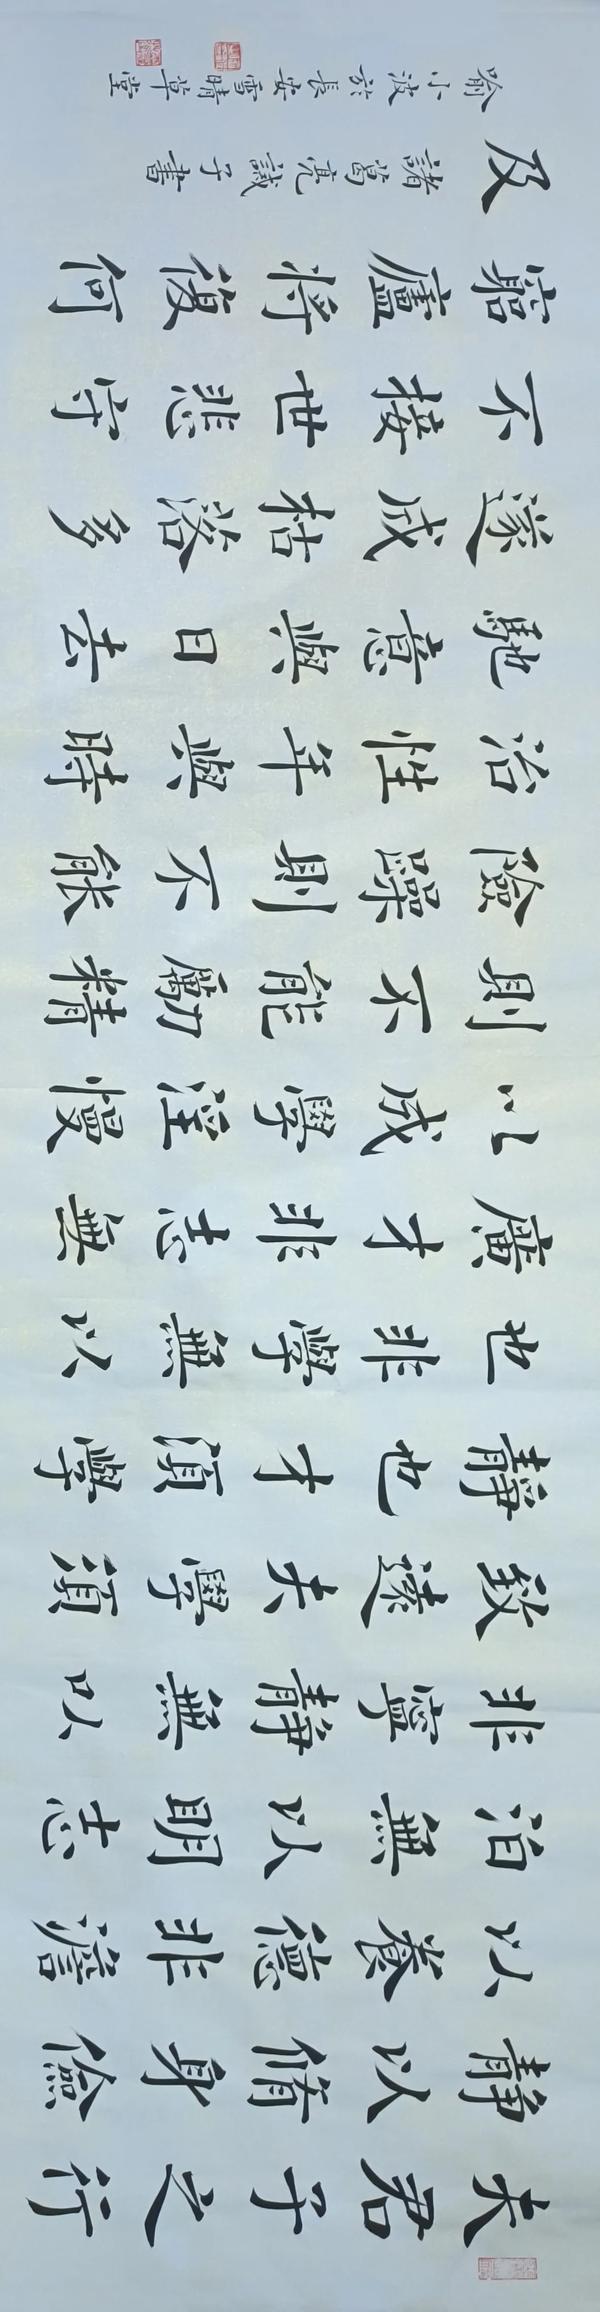 夫君子之行
靜以脩身儉
以養德非澹
泊無以明志
非寧靜無以
致遠夫學須
靜也才須學
也非學無以
廣才非志無
以成學淫慢
則不能勵精
險躁則不能
治性年與時
馳意與日去
遂成枯落多
不接世悲守
窮廬將復何
及 諸葛亮誡子書
喻小波於長安雪晴草堂